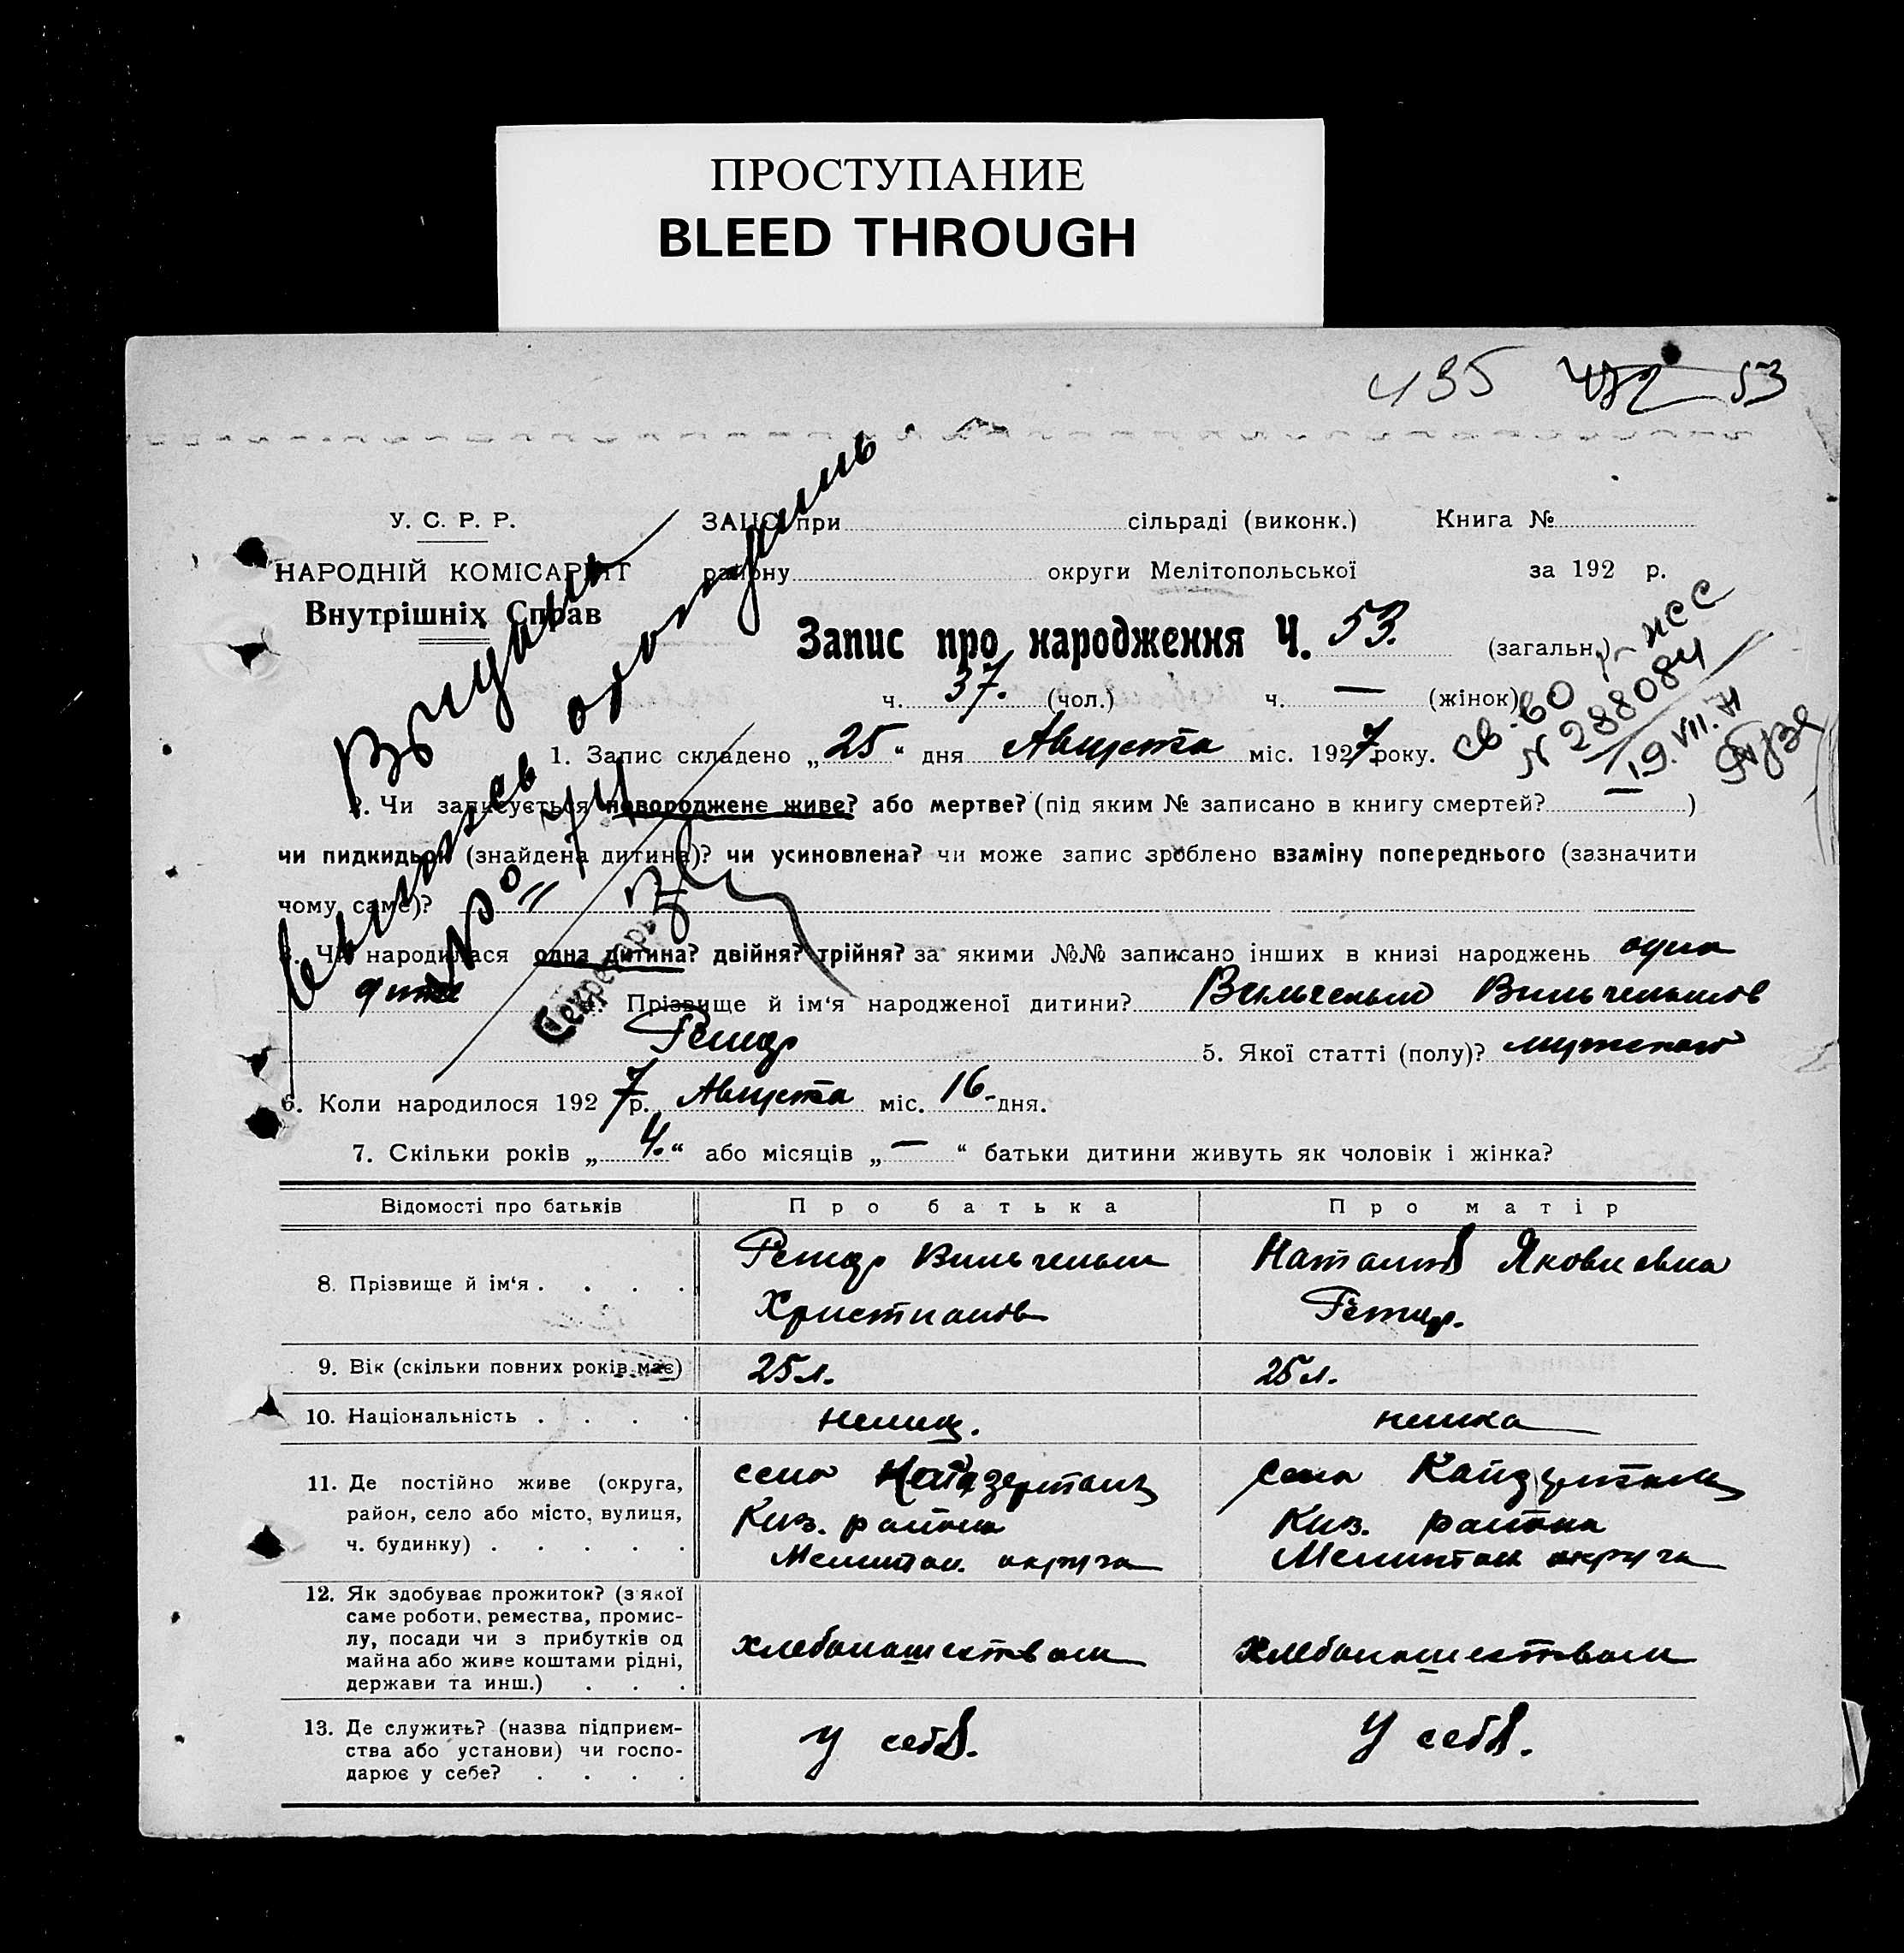 ПРОСТУПАНИЕ
BLEED THROUGH
435 53
У. С. Р. Р.
НАРОДНІЙ КОМІСАРІЯТ
Внутрішніх Справ
ЗАЦС при сільраді (виконк.) Книга №
району округи Мелітопольської за 192 р.
Запис про народження Ч. 53. (загальн.)
ч. 37. (чол.) ч. — (жінок)
св-во
N 288084
19.VII.71
1. Запис складено „25“ дня Августа міс. 1927 року.
2. Чи записується новороджене живе? або мертве? (під яким № записано в книгу смертей? — )
чи пидкидьок (знайдена дитина)? чи усиновлена? чи може запис зроблено взаміну попереднього (зазначити
чому саме)?
Секретарь
3. Чи народилася одна дитина? двійня? трійня? за якими №№ записано інших в книзі народжень одно
дитя 4. Прізвище й ім‘я народженої дитини? Вильгельм Вильгельмов
5. Якої статті (полу)? мужского
6. Коли народилося 1927 р. Августа міс. 16 дня.
7. Скільки років „4.“ або місяців „—“ батьки дитини живуть як чоловік і жінка?
Відомості про батьків Про батька Про матір
8. Прізвище й ім‘я . . . . Вильгельм Наталія Яковлевна
Христианов
9. Вік (скільки повних років має) 25 л. 25 л.
10. Національність . . . . немец. немка
11. Де постійно живе (округа, село село
район, село або місто, вулиця, Киз. района Киз. района
ч. будинку) . . . . . Мелитоп. округа Мелитоп округа
12. Як здобуває прожиток? (з якої
саме роботи, ремества, промис-
лу, посади чи з прибутків од хлебопашеством хлебопашеством
майна або живе коштами рідні,
держави та инш.) . . .
13. Де служить? (назва підприєм- у себѣ. У себѣ.
ства або установи) чи госпо-
дарює у себе? . . . .